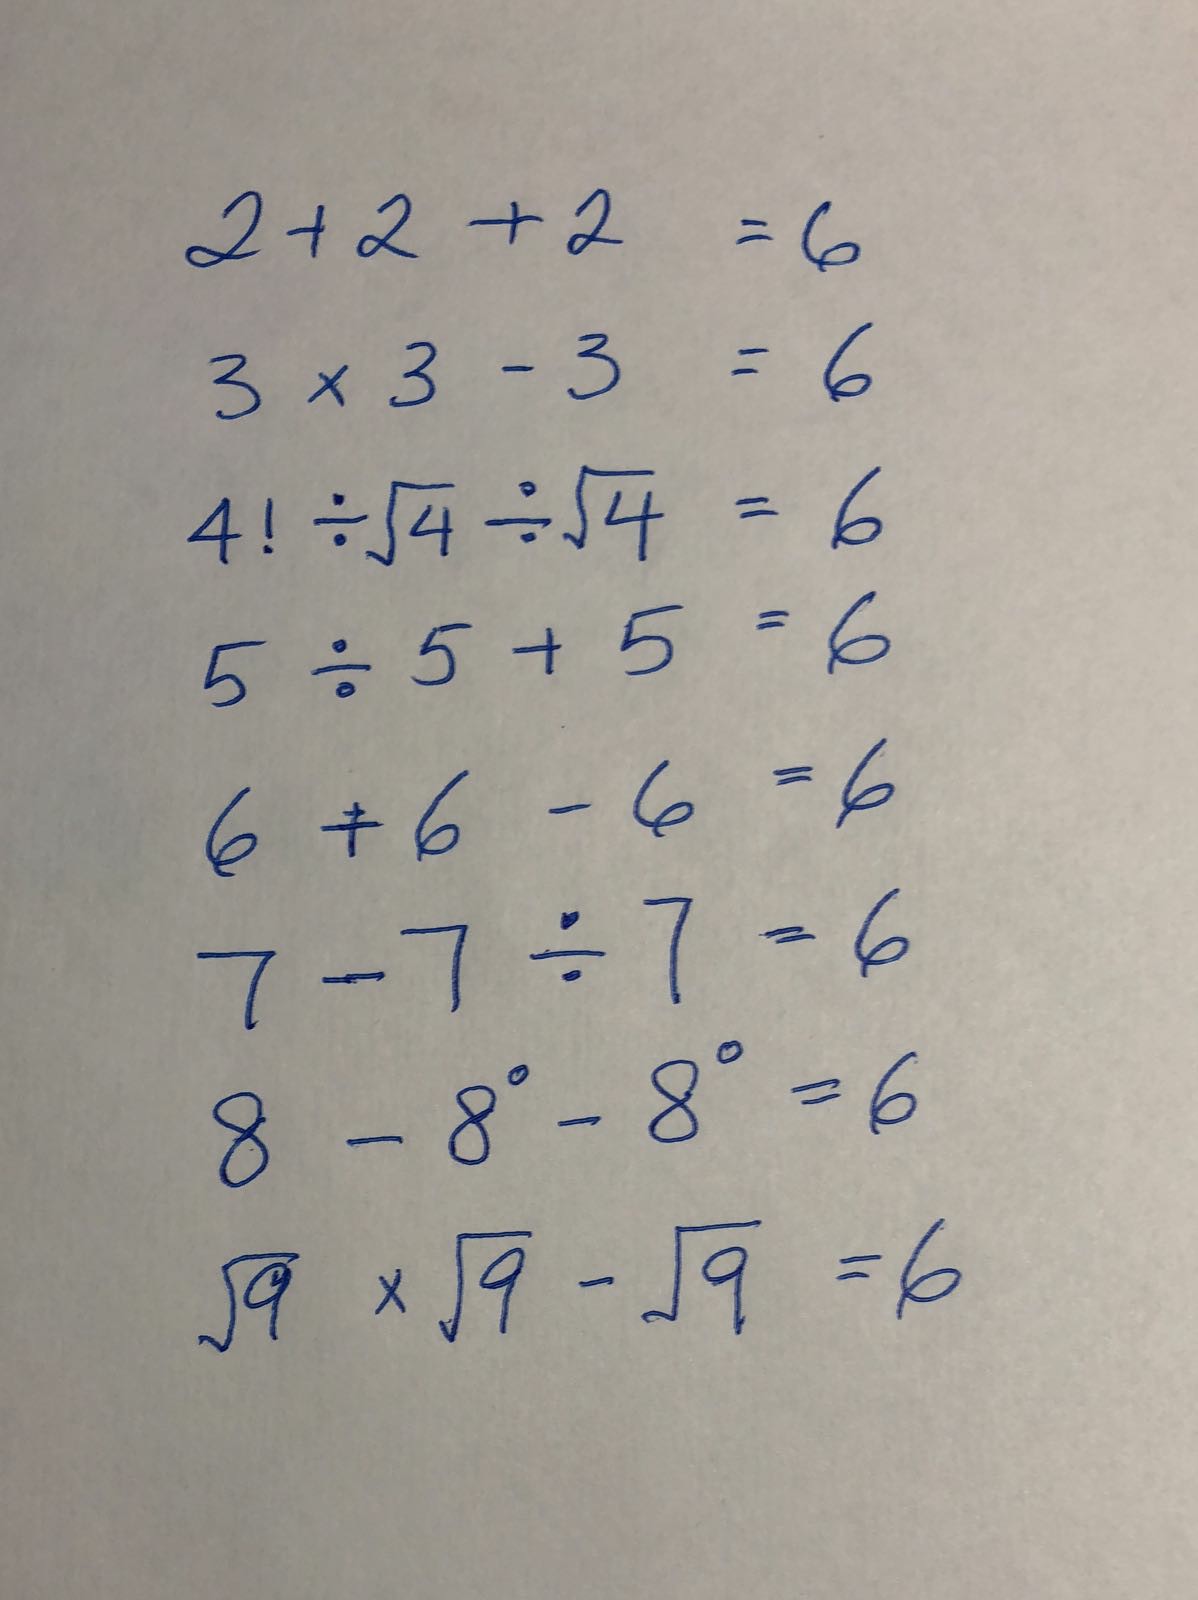 2 + 2 + 2 = 6
3 × 3 - 3 = 6
4! ÷ √4 ÷ √4 = 6
5 ÷ 5 + 5 = 6
6 + 6 - 6 = 6
7 - 7 ÷ 7 = 6
8 - 8° - 8° = 6
√9 × √9 - √9 = 6